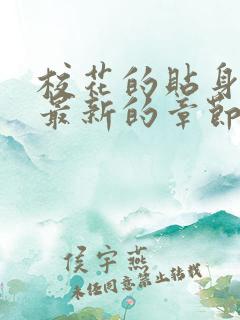 校花的贴身
最新的章节
侯宇燕
未经同意禁止转载